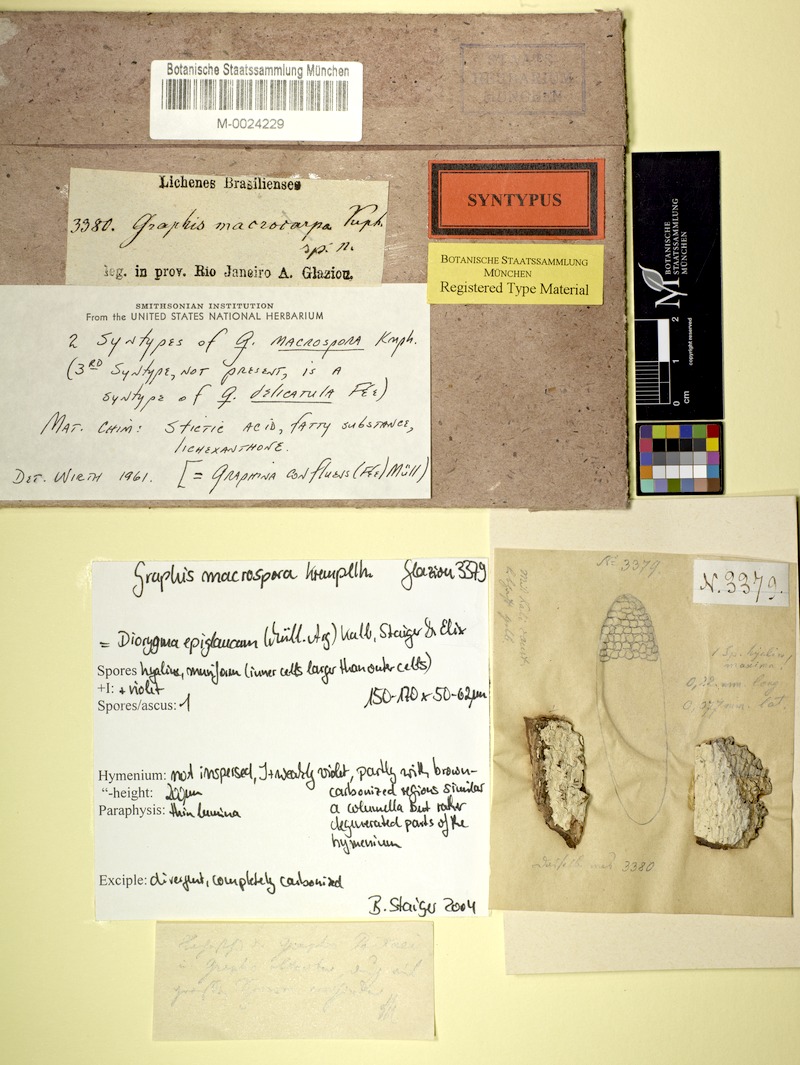 Botanische Staatssammlung München
M-0024229
HERBARIUM
MÜNCHEN
Lichenes Brasilienses
3380. Graphis macrocarpa Kmph.
sp. n.
leg. in prov. Rio Janeiro A. Glaziou.
SYNTYPUS
BOTANISCHE STAATSSAMMLUNG
MÜNCHEN
Registered Type Material
SMITHSONIAN INSTITUTION
From the UNITED STATES NATIONAL HERBARIUM
2 SYNTYPES OF G. MACROSPORA Kmph.
(3RD SYNTYPE, NOT PRESENT, IS A
SYNTYPE OF G. DELICATULA FÉE)
MAT. CHIM: STICTIC ACID, FATTY SUBSTANCE,
LICHEXANTHONE.
DET. WIRTH 1961. [= GRAPHINA CONFLUENS (FÉE) MÜLL]
BOTANISCHE
STAATSSAMMLUNG
MÜNCHEN
copyright reserved
0 1 2
cm
Graphis macrospora Krempelh. Glaziou 3379
= Diorygma epiglaucum (Müll. Arg) Kalb, Staiger & Elix
Spores hyaline, muriform (inner cells larger than outer cells)
+I: + violet
Spores/ascus: 1 150-170 x 50-62µm
Hymenium: not inspersed, I+ weakly violet, partly with brown-
carbonized regions similar
a columella but rather
degenerated parts of the
hymenium
"-height: 200µm
Paraphysis: thin lumina
Exciple: divergent, completely carbonized
B. Staiger 2004
No 3379.
N. 3379.
1 Sp. hyalin
maxima!
0,22 mm. long
lat.
3380
Graphis